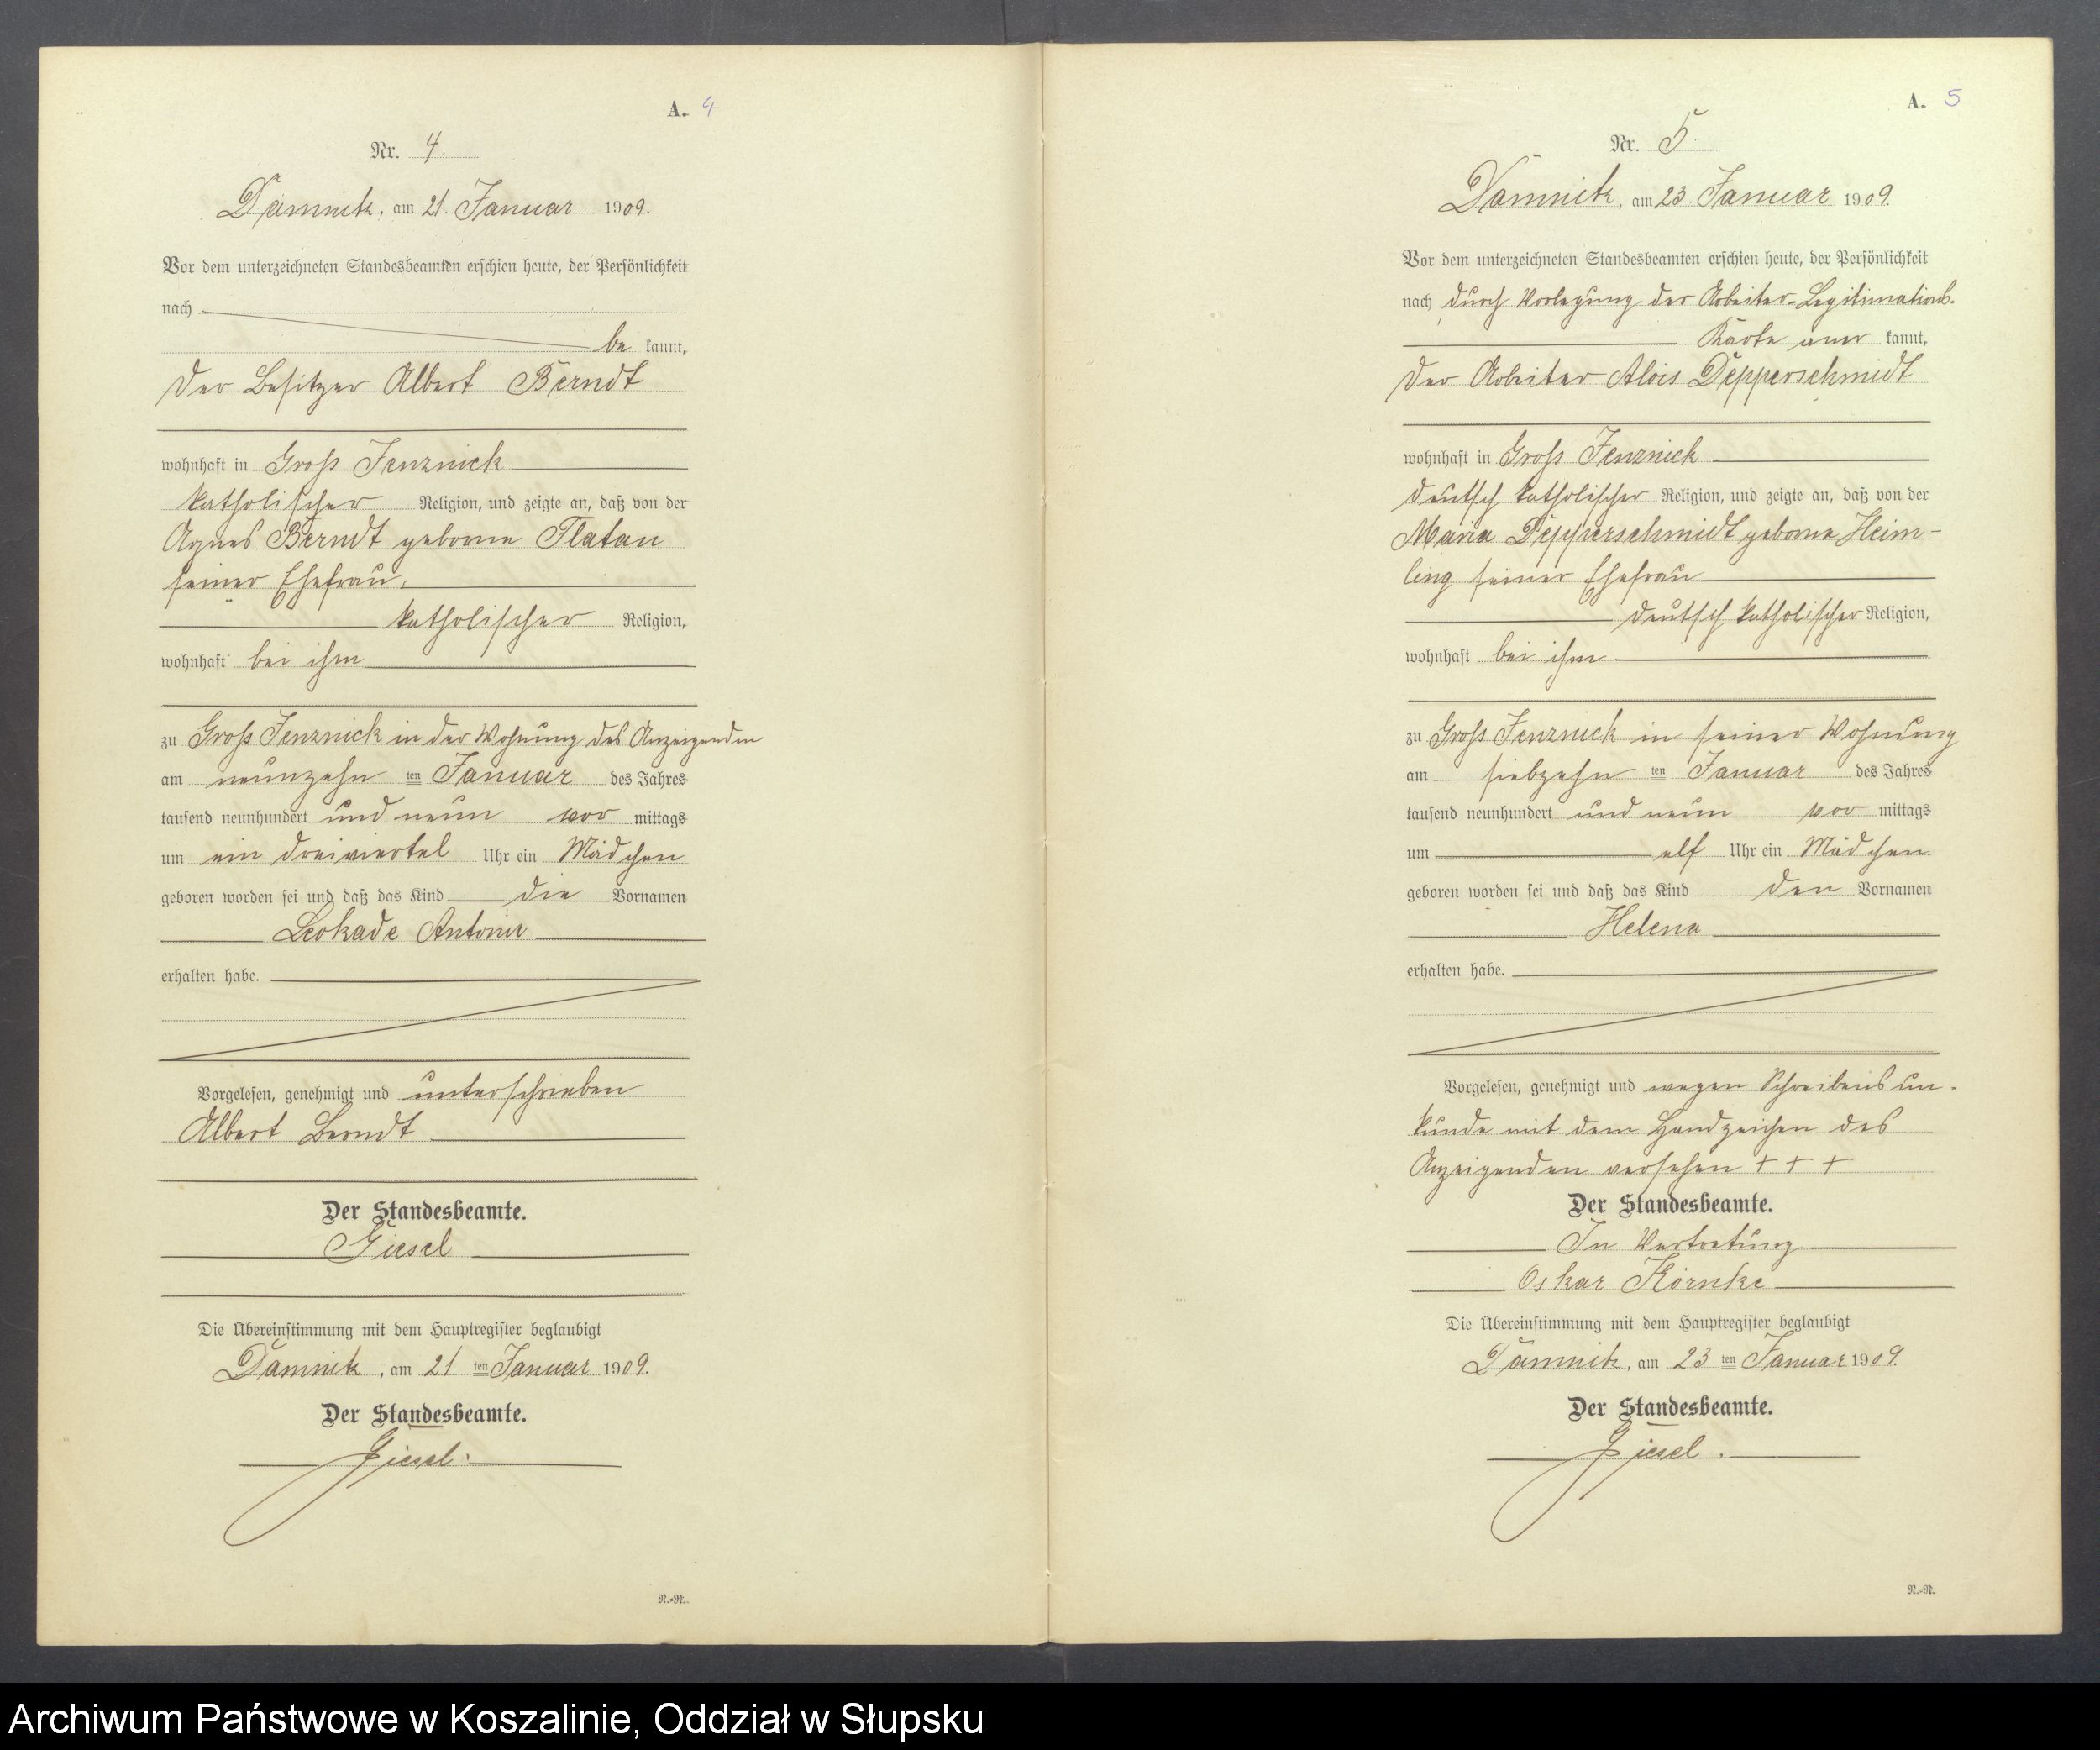 A. 4
Nr. 4.
Damnitz, am 21. Januar 1909.
Vor dem unterzeichneten Standesbeamten erschien heute, der Persönlichkeit
nach
be kannt,
der Besitzer Albert Berndt
wohnhaft in Gross Jenznick
katholischer Religion, und zeigte an, daß von der
Agnes Berndt geborne Flatau
seiner Ehefrau,
katholischer Religion,
wohnhaft bei ihm
zu Gross Jenznick in der Wohnung des Anzeigenden
am neunzehn ten Januar des Jahres
tausend neunhundert und neun vor mittags
um ein dreiviertel Uhr ein Mädchen
geboren worden sei und daß das Kind die Vornamen
Leokade
erhalten habe.
Vorgelesen, genehmigt und unterschrieben
Albert Berndt
Der Standesbeamte.
Giesel
Die Übereinstimmung mit dem Hauptregister beglaubigt
Damnitz, am 21 ten Januar 1909.
Der Standesbeamte.
Giesel.
N.-N.
A. 5
Nr. 5.
Damnitz, am 23. Januar 1909.
Vor dem unterzeichneten Standesbeamten erschien heute, der Persönlichkeit
nach durch Vorlegung der Arbeiter-Legitimations-
Karte aner kannt,
der Arbeiter Alois Depperschmidt
wohnhaft in Gross Jenznick
deutsch katholischer Religion, und zeigte an, daß von der
Maria Depperschmidt geborne Heim-
ling seiner Ehefrau
deutsch katholischer Religion,
wohnhaft bei ihm
zu Gross Jenznick in seiner Wohnung
am siebzehn ten Januar des Jahres
tausend neunhundert und neun vor mittags
um elf Uhr ein Mädchen
geboren worden sei und daß das Kind den Vornamen
Helena
erhalten habe.
Vorgelesen, genehmigt und wegen Schreibensun-
kunde mit dem Handzeichen des
Anzeigenden versehen + + +
Der Standesbeamte.
In Vertretung
Oskar Körnke
Die Übereinstimmung mit dem Hauptregister beglaubigt
Damnitz, am 23 ten Januar 1909.
Der Standesbeamte.
Giesel.
N.-N.
Archiwum Państwowe w Koszalinie, Oddział w Słupsku